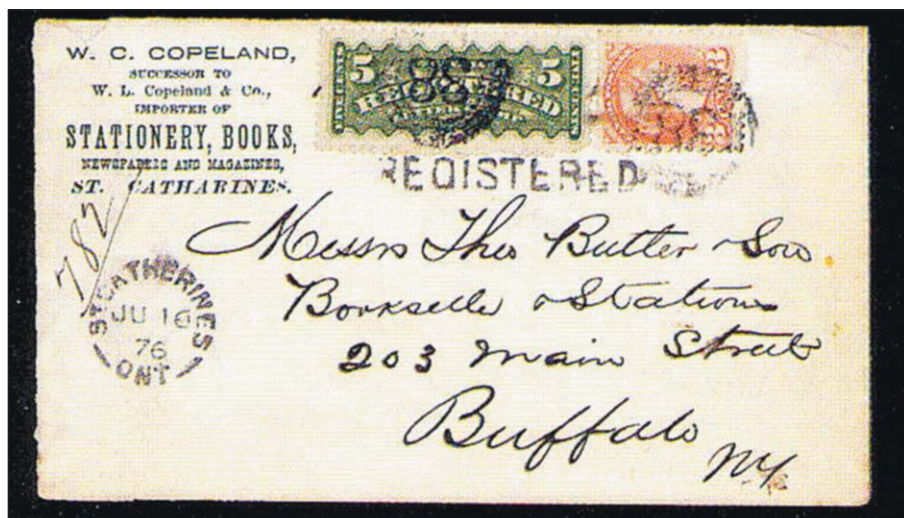 W. C. COPELAND,
SUCCESSOR TO
W. L. Copeland & Co.,
IMPORTER OF
STATIONERY, BOOKS,
NEWSPAPERS AND MAGAZINES,
ST. CATHARINES.
5 5
REGISTERED
3
REGISTERED
782
ST CATHERINES
JU 16
76
ONT
Messrs Theo Butler & Son
Bookselle & Station
203 Main Street
Buffalo
N.Y.